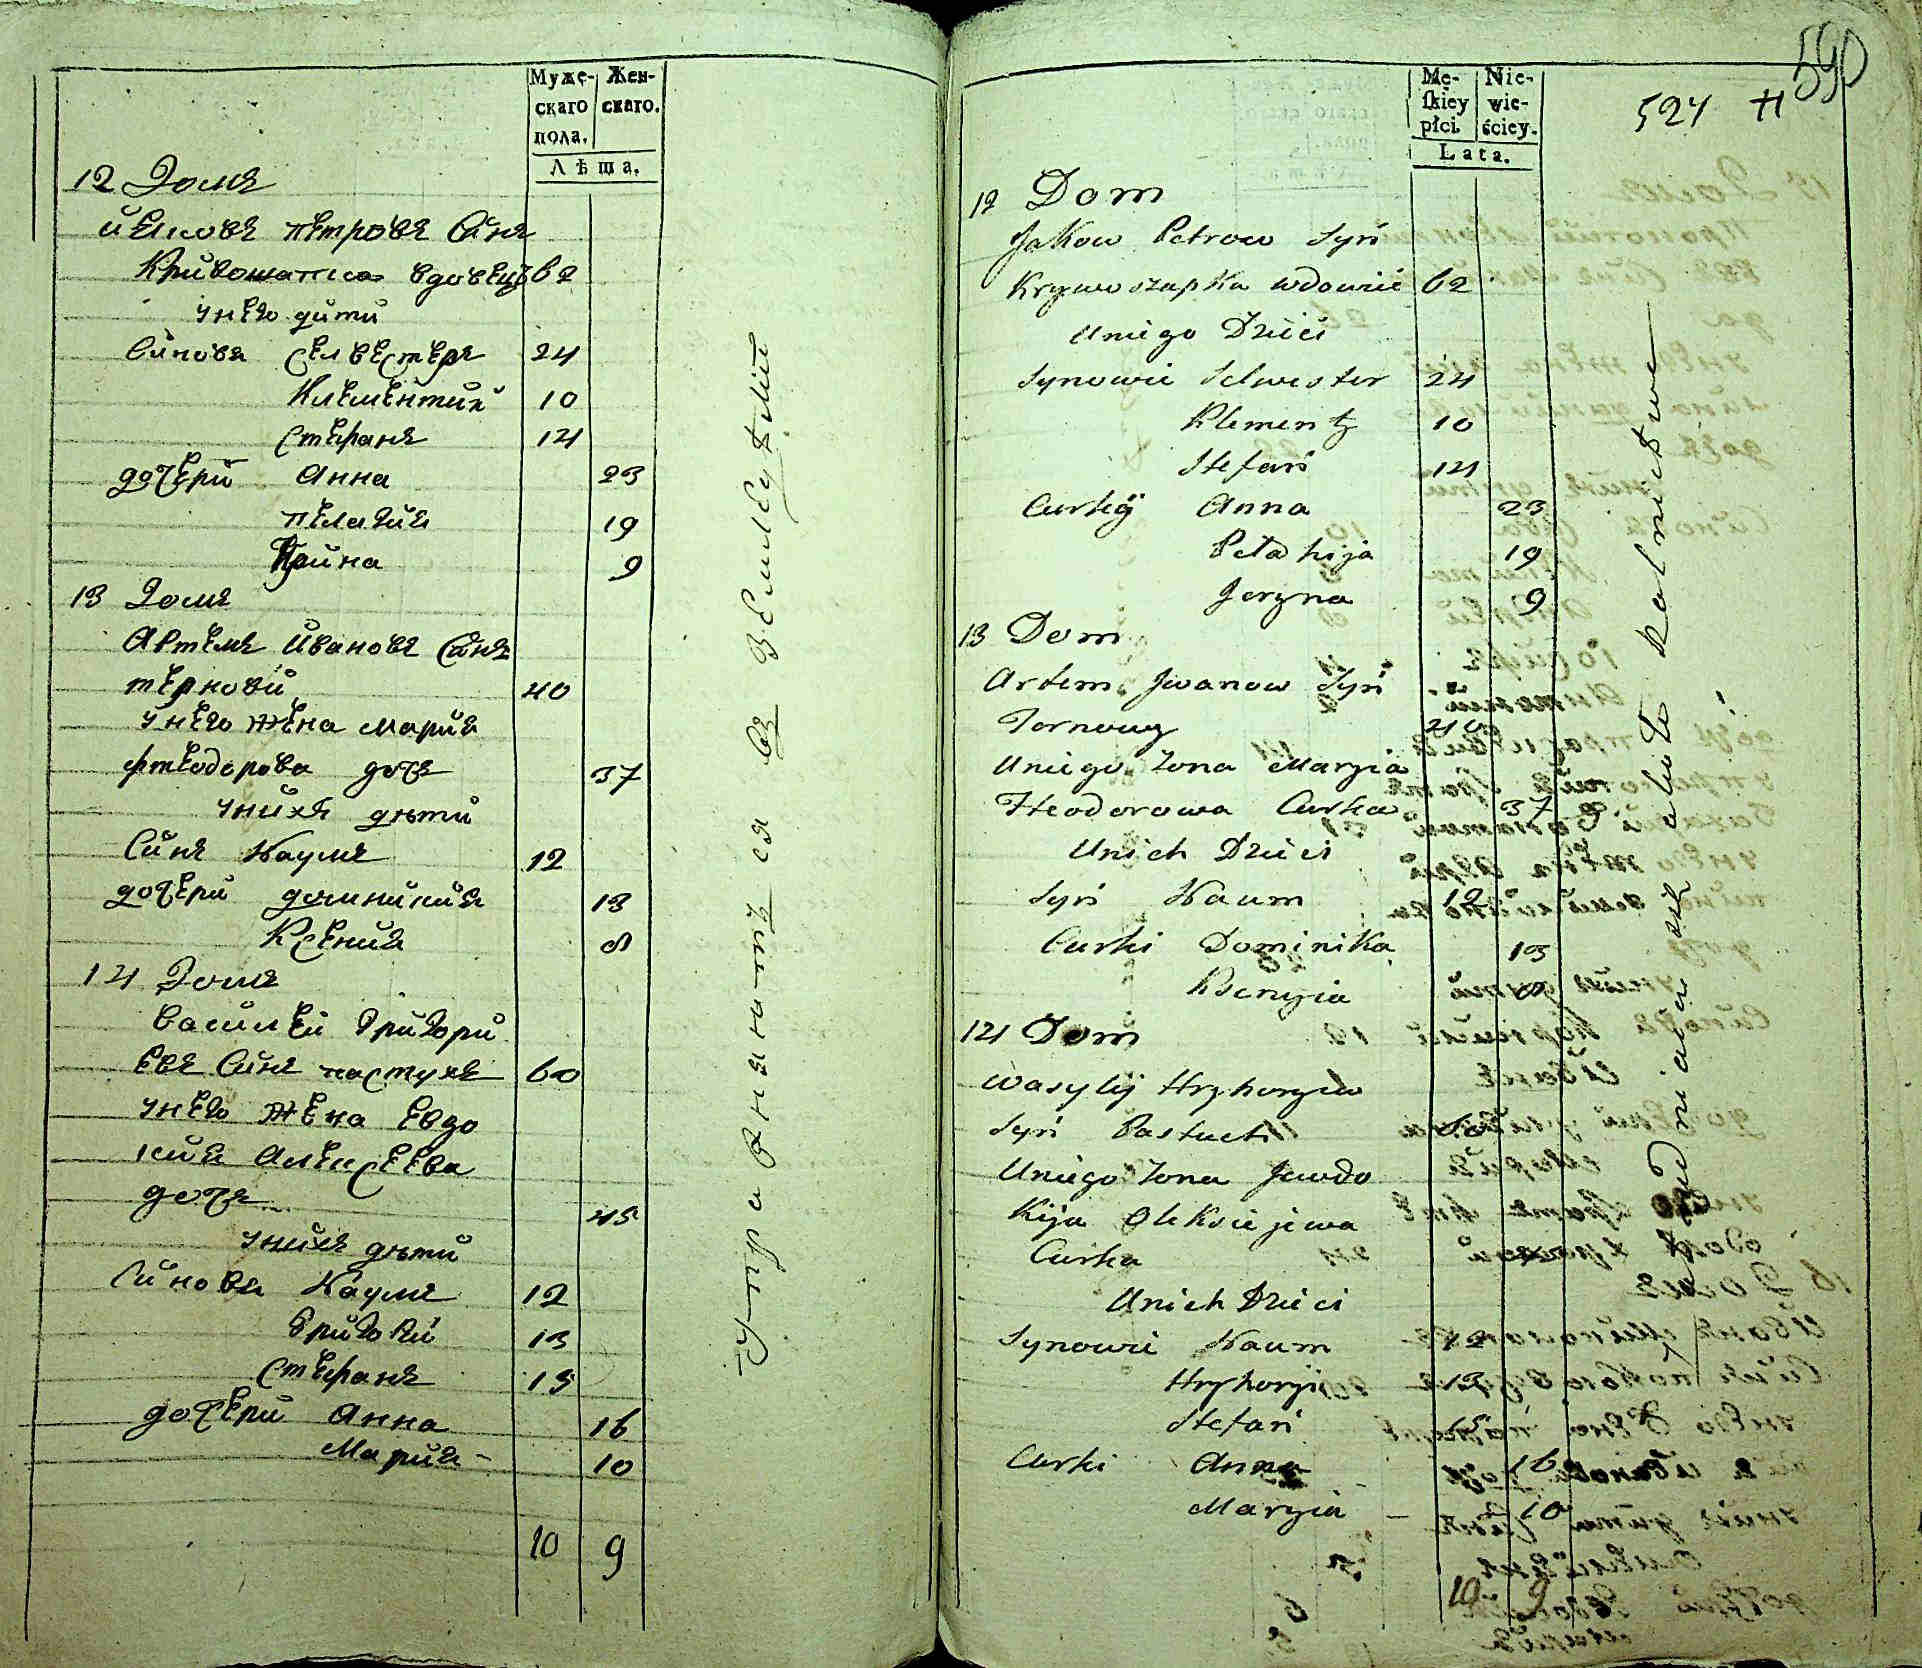 Муже-
скаго
пола.
Жен-
скаго.
Лѣта.
12 Домъ
Иаковъ Петровъ Синъ
Кривошапка вдовецъ 62
унего дити
Синовя Селвестеръ 24
Климентий 10
Стефанъ 14
дочери Анна 23
Пелагия 19
Ирина 9
13 Домъ
Артемъ Ивановъ Синъ
терновий 40
унего жена Мария
Фтеодорова дочъ 37
унихъ дѣти
Синъ Наумъ 12
дочери доминикия 13
Ксения 8
14 Домъ
Василей Григори
евъ Синъ пастухъ 60
унего жена Евдо
кия Алексеева
дочъ 45
унихъ дѣти
Синовя Наумъ 12
Григорий 13
Стефанъ 15
дочери Анна 16
Мария 10
10 9
Упражняютъ ся въ Земледѣлии
590
524 H
Mę-
skiey
płci
Nie-
wie-
ściey.
Lata.
12 Dom
Jakow Petrow Syn
Krywoszapka wdowiec 62
Uniego Dzieci
Synowie Selwester 24
Klementy 10
Stefan 14
Curky Anna 23
Pelahija 19
Jeryna 9
13 Dom
Artem Jwanow Syn
Ternowy 40
Uniego Zona Maryia
Fteodorowa Curka 37
Unich Dzieci
Syn Naum 12
Curki Dominika 13
Ksenyia 8
14 Dom
Wasylij Hryhoryew
Syn Pastuch 60
Uniego Zona Jewdo
Kija Oleksiejewa
Curka 45
Unich Dzieci
Synowie Naum 12
Hryhoryi 13
Stefan 15
Curki Anna 16
Maryia 10
10 9